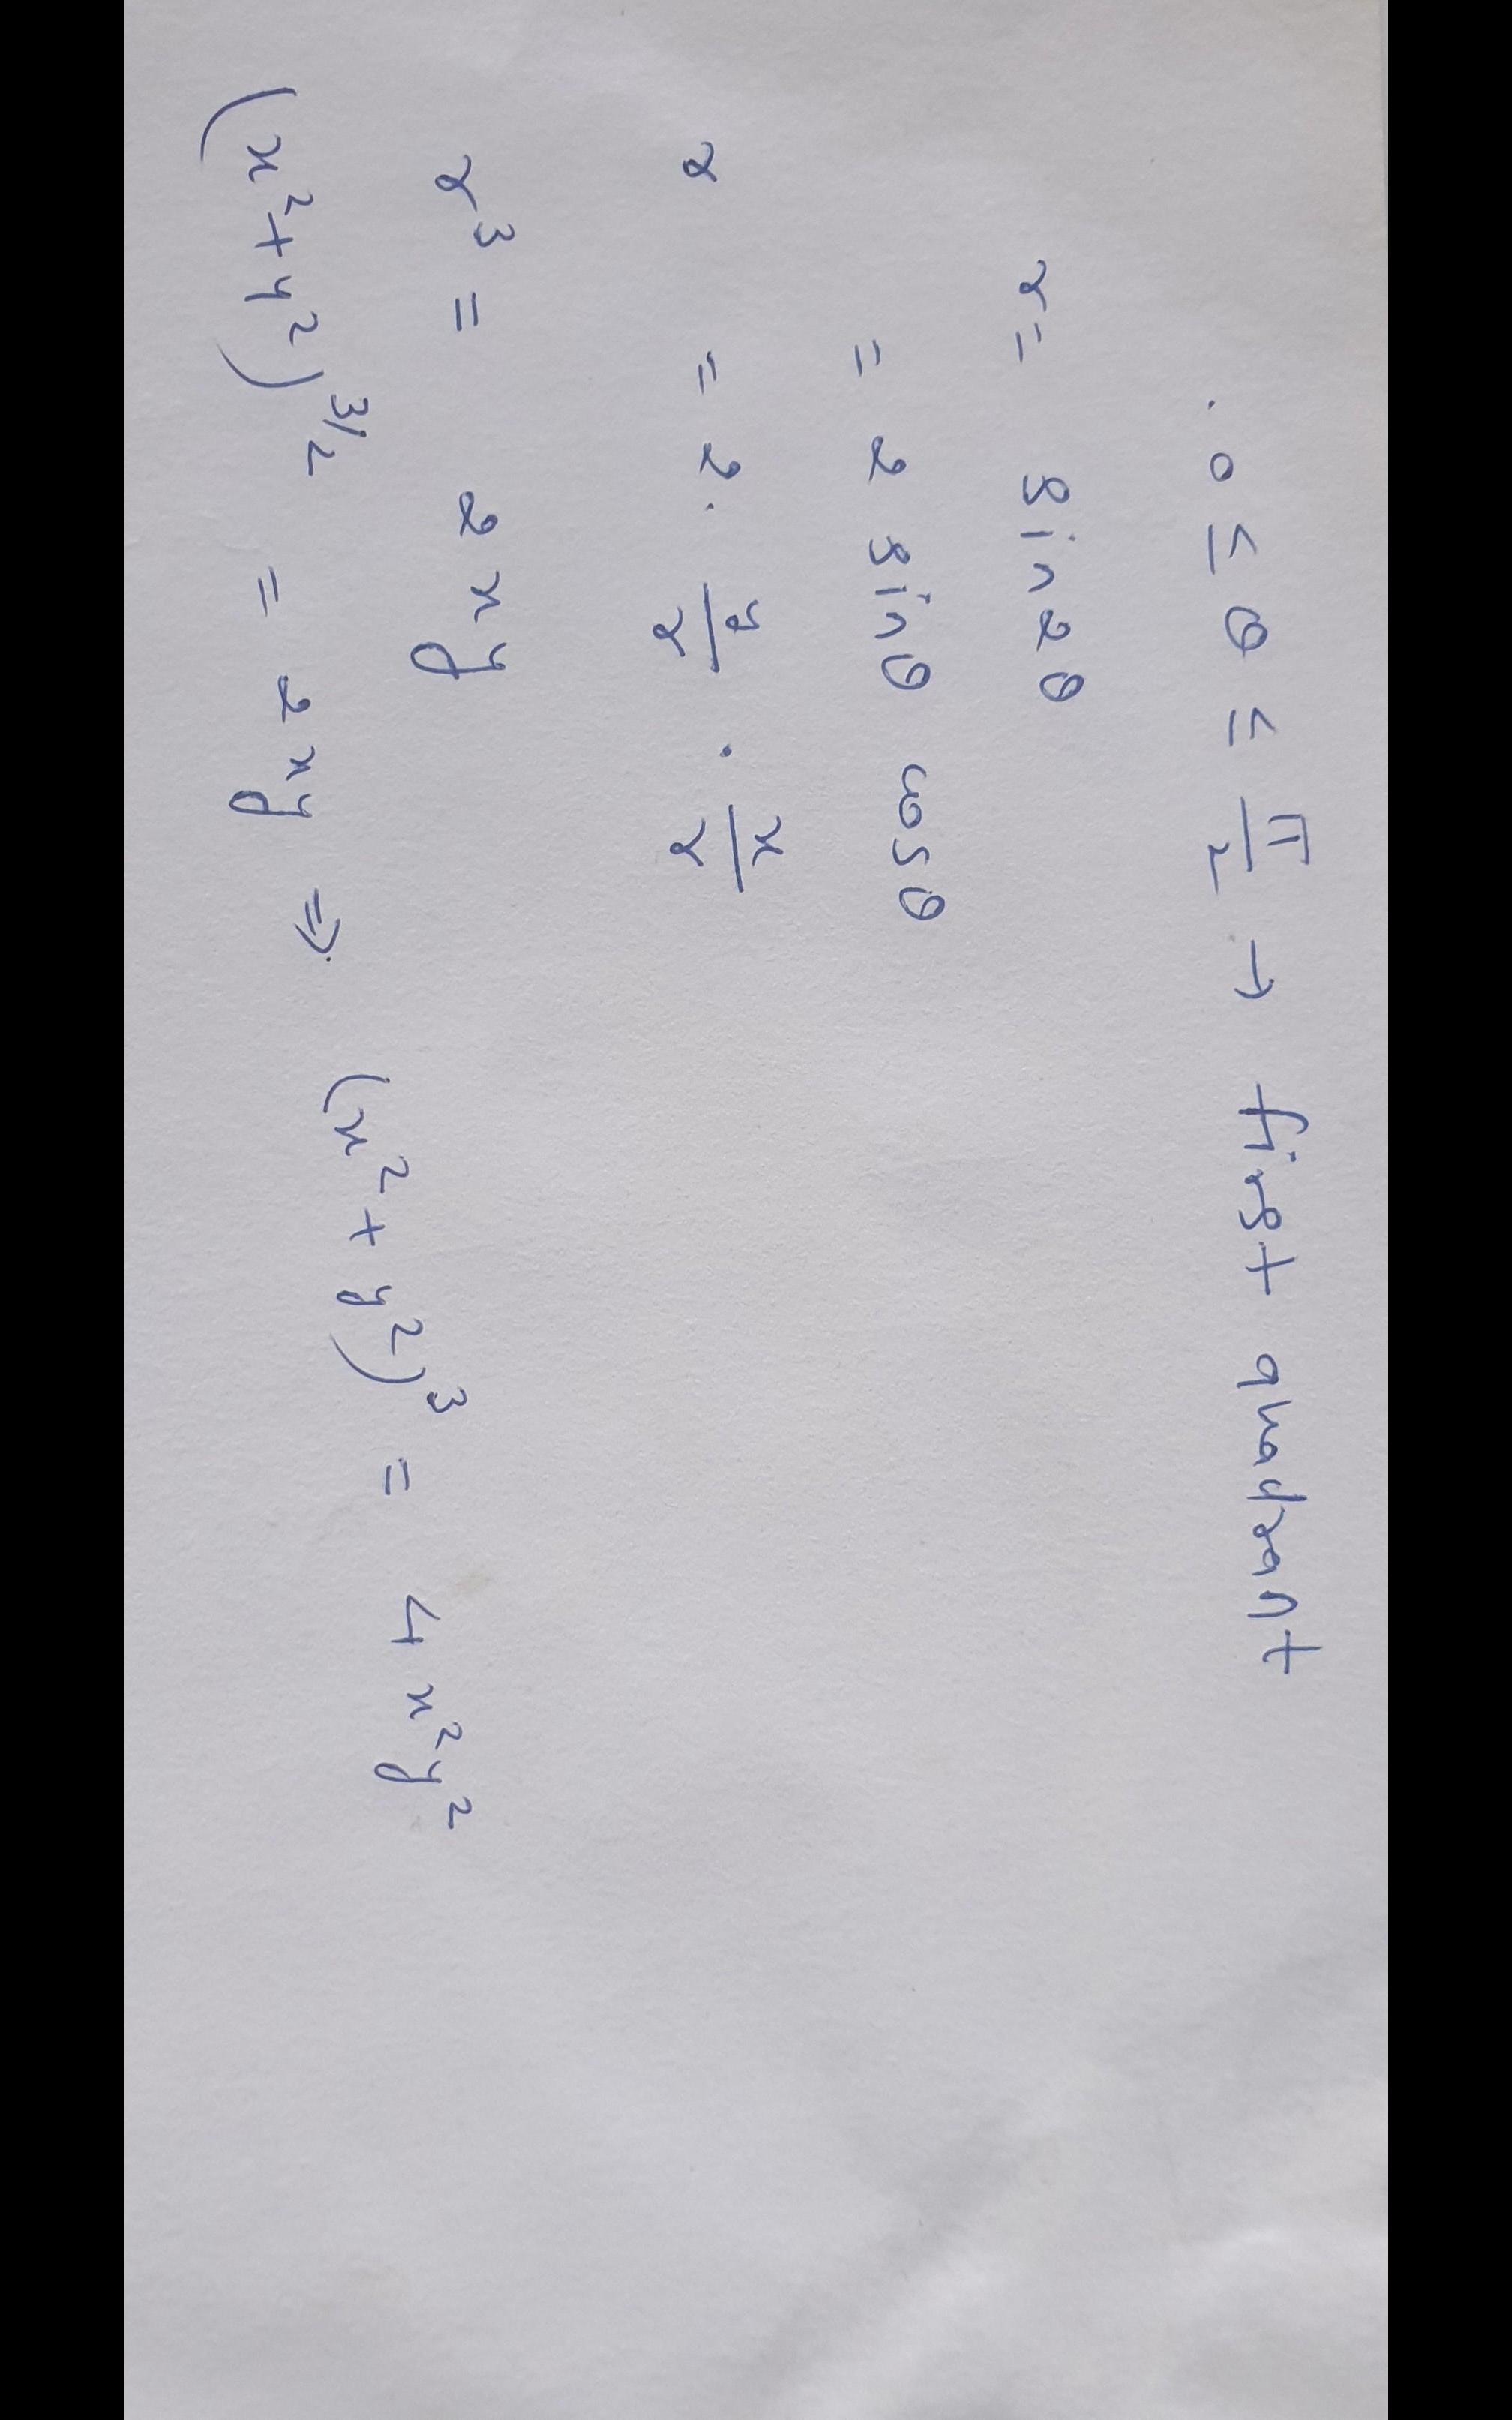 . 0 ≤ θ ≤ π/2 → first quadrant
r = sin2θ
= 2 sinθ cosθ
r = 2 . y/r . x/r
r³ = 2xy
(x²+y²)^3/2 = 2xy ⇒ (x² + y²)³ = 4x²y²